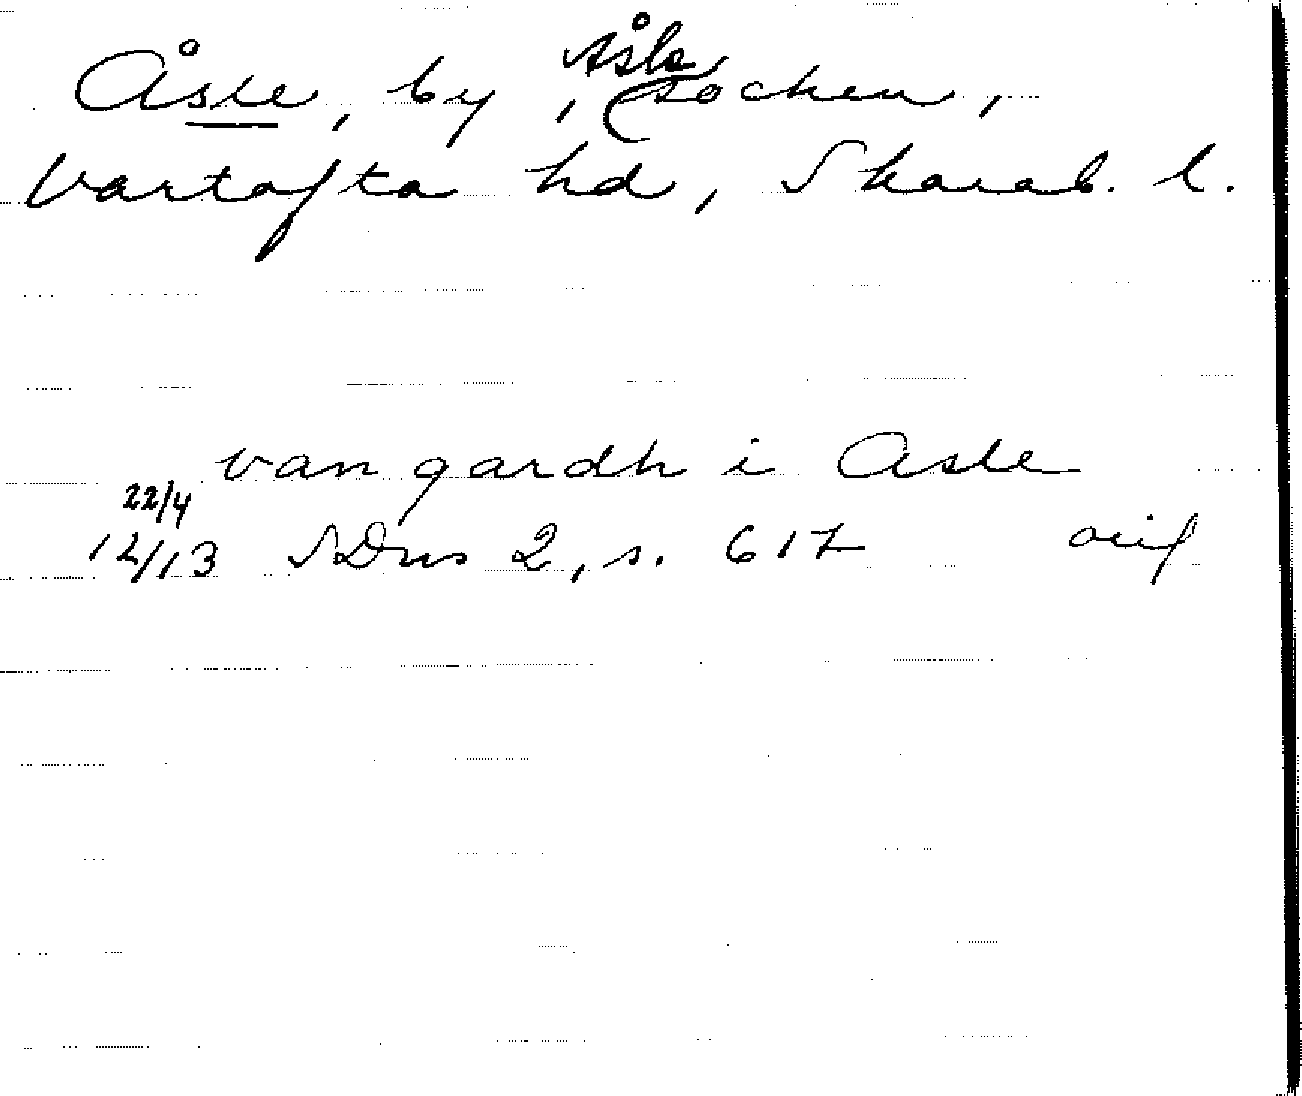 Åsle, by, Åsle socken,
Vartofta hd, Skarab. l.
van gardh i Asle
22/4
1413 SDns 2, s. 617 orig